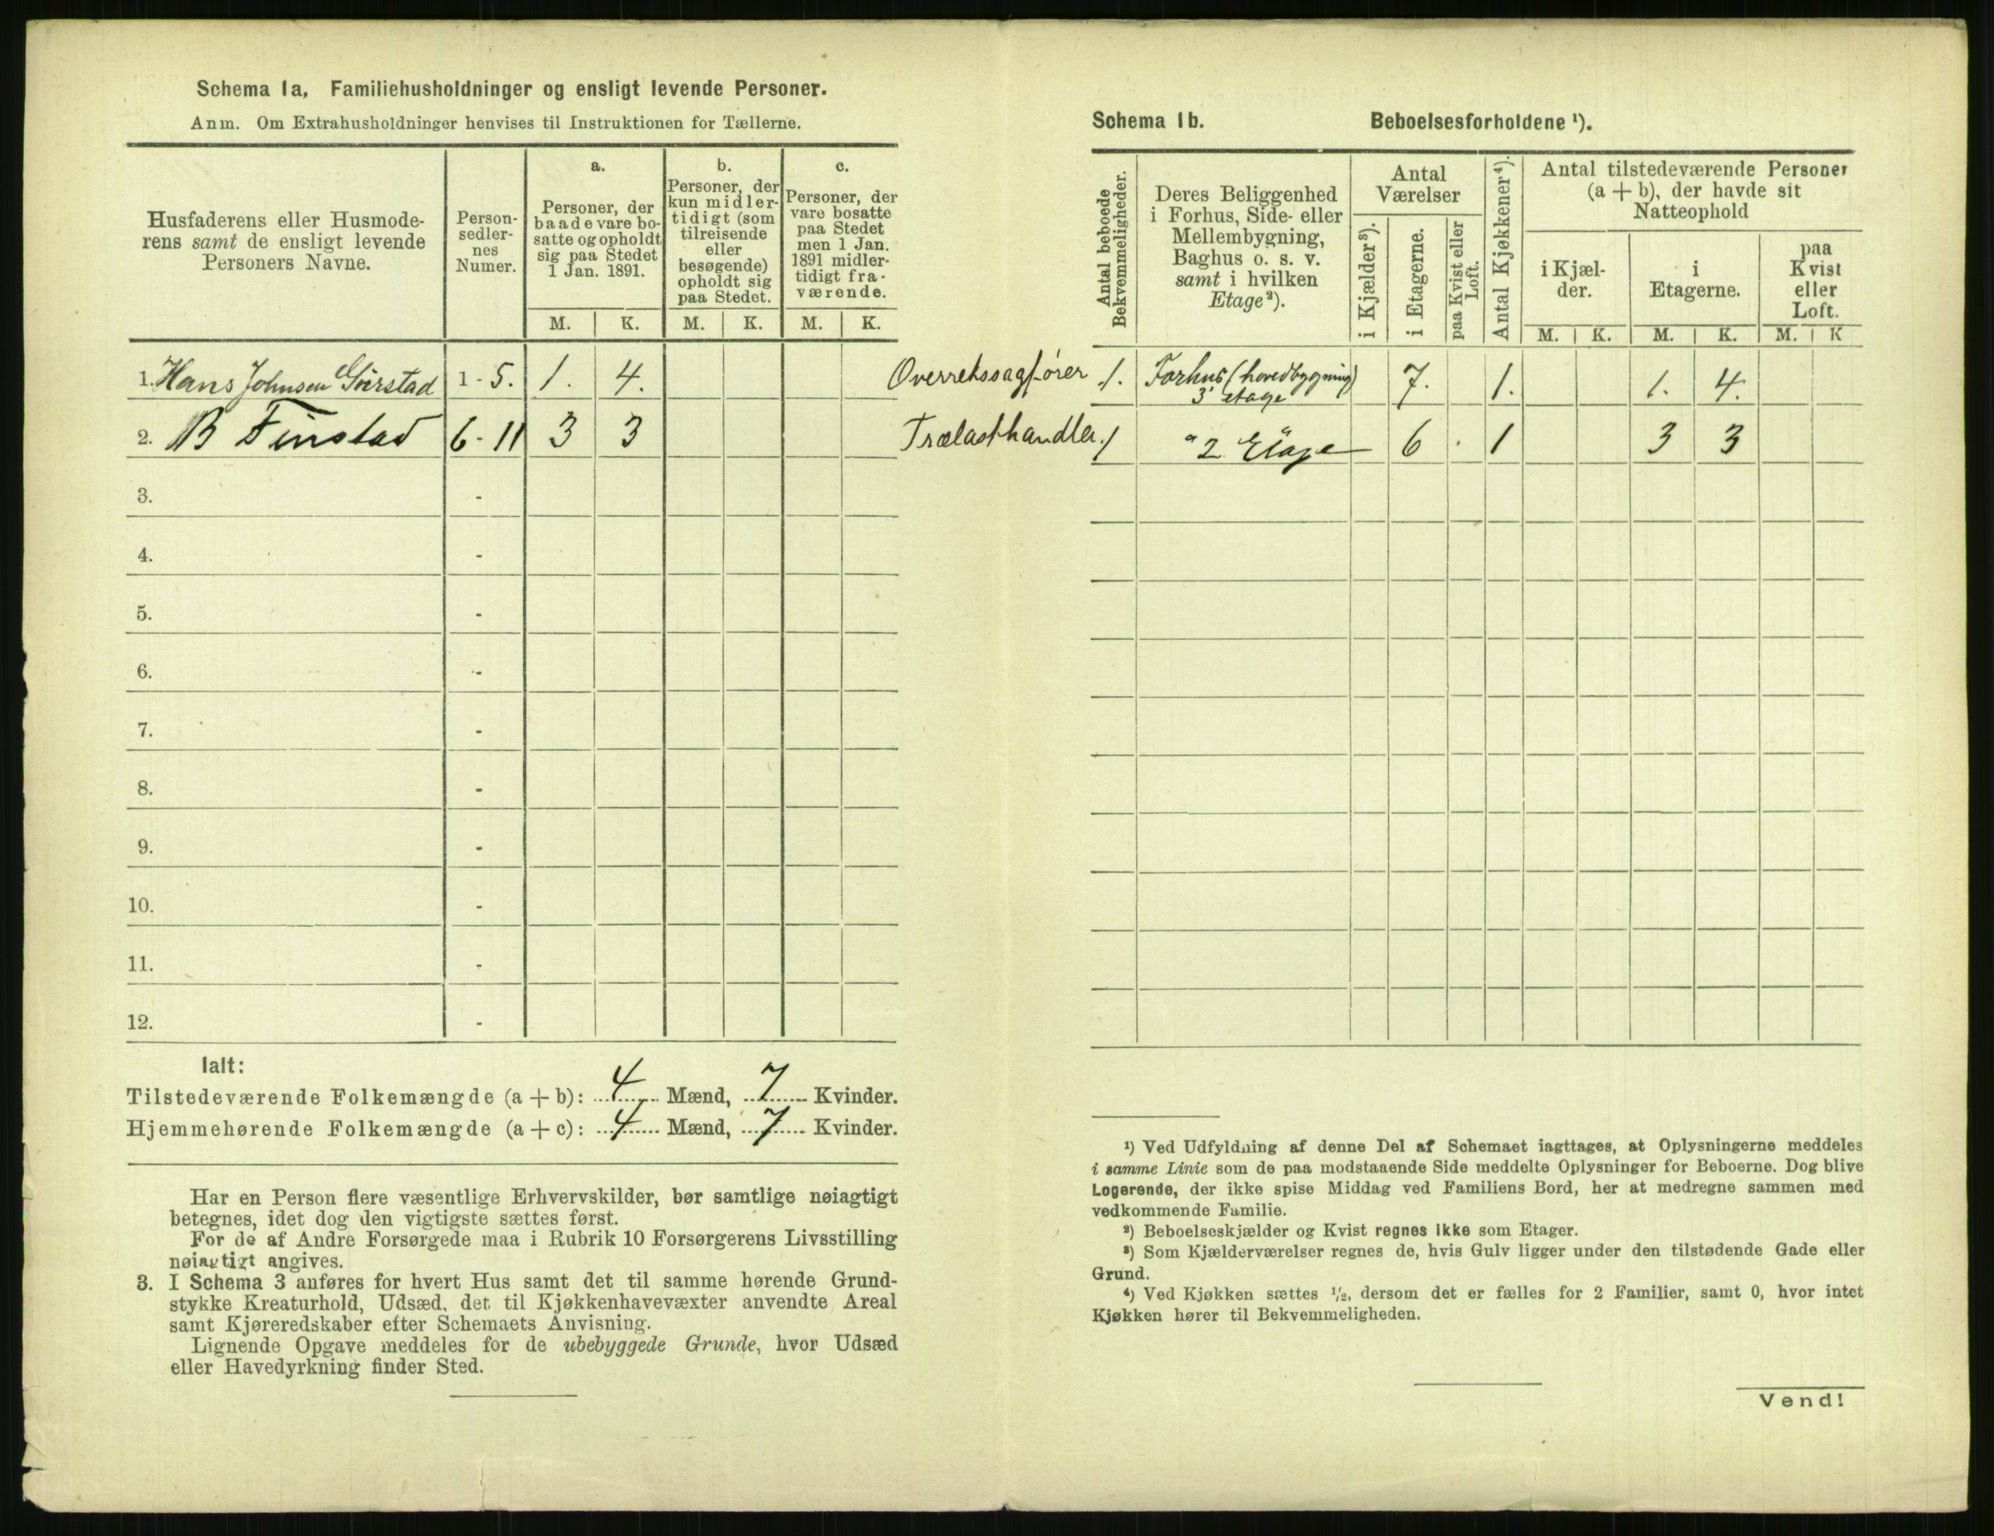 Schema 1a. Familiehusholdninger og ensligt levende Personer.
Anm. Om Extrahusholdninger henvises til Instruktionen for Tællerne.
Husfaderens eller Husmode-
rens samt de ensligt levende
Personers Navne.
Person-
sedler-
nes
Numer.
a.
Personer, der
baade vare bo-
satte og opholdt
sig paa Stedet
1 Jan. 1891.
b.
Personer, der
kun midler-
tidigt (som
tilreisende
eller
besøgende)
opholdt sig
paa Stedet.
c.
Personer, der
vare bosatte
paa Stedet
men 1 Jan.
1891 midler-
tidigt fra-
værende.
M. K. M. K. M. K.
1. Hans Johnsen Gierstad 1 - 5. 1. 4. Overretssagfører
2. B Finstad 6 - 11 3 3 Trælasthandler.
3. -
4. -
5. -
6. -
7. -
8. -
9. -
10. -
11. -
12. -
Ialt:
Tilstedeværende Folkemængde (a + b): 4 Mænd, 7 Kvinder.
Hjemmehørende Folkemængde (a + c): 4 Mænd, 7 Kvinder.
Har en Person flere væsentlige Erhvervskilder, bør samtlige nøiagtigt
betegnes, idet dog den vigtigste sættes først.
For de af Andre Forsørgede maa i Rubrik 10 Forsørgerens Livsstilling
nøiagtigt angives.
3. I Schema 3 anføres for hvert Hus samt det til samme hørende Grund-
stykke Kreaturhold, Udsæd, det til Kjøkkenhavevæxter anvendte Areal
samt Kjøreredskaber efter Schemaets Anvisning.
Lignende Opgave meddeles for de ubebyggede Grunde, hvor Udsæd
eller Havedyrkning finder Sted.
Schema 1b. Beboelsesforholdene ¹).
Antal beboede
Bekvemmeligheder.
Deres Beliggenhed
i Forhus, Side- eller
Mellembygning,
Baghus o. s. v.
samt i hvilken
Etage²).
Antal
Værelser
i Kjælder³).
i Etagerne.
paa Kvist eller
Loft.
Antal Kjøkkener⁴).
Antal tilstedeværende Personer
(a + b), der havde sit
Natteophold
i Kjæl-
der.
i
Etagerne.
paa
Kvist
eller
Loft.
M. K. M. K. M. K
1. Forhus (hovedbygning) 7. 1. 1. 4.
3' etage
1 " 2 Etage 6 1 3 3
¹) Ved Udfyldning af denne Del af Schemaet iagttages, at Oplysningerne meddeles
i samme Linie som de paa modstaaende Side meddelte Oplysninger for Beboerne. Dog blive
Logerende, der ikke spise Middag ved Familiens Bord, her at medregne sammen med
vedkommende Familie.
²) Beboelseskjælder og Kvist regnes ikke som Etager.
³) Som Kjælderværelser regnes de, hvis Gulv ligger under den tilstødende Gade eller
Grund.
⁴) Ved Kjøkken sættes ½, dersom det er fælles for 2 Familier, samt 0, hvor intet
Kjøkken hører til Bekvemmeligheden.
Vend!